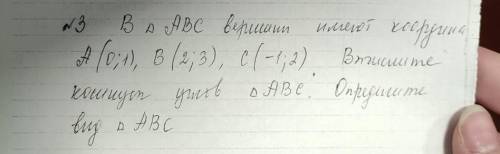 №3 В △ ABC вершины имеют координа
A(0;1), B(2;3), C(-1;2) Вычислите
косинус углов △ABC. Определите
вид △ ABC